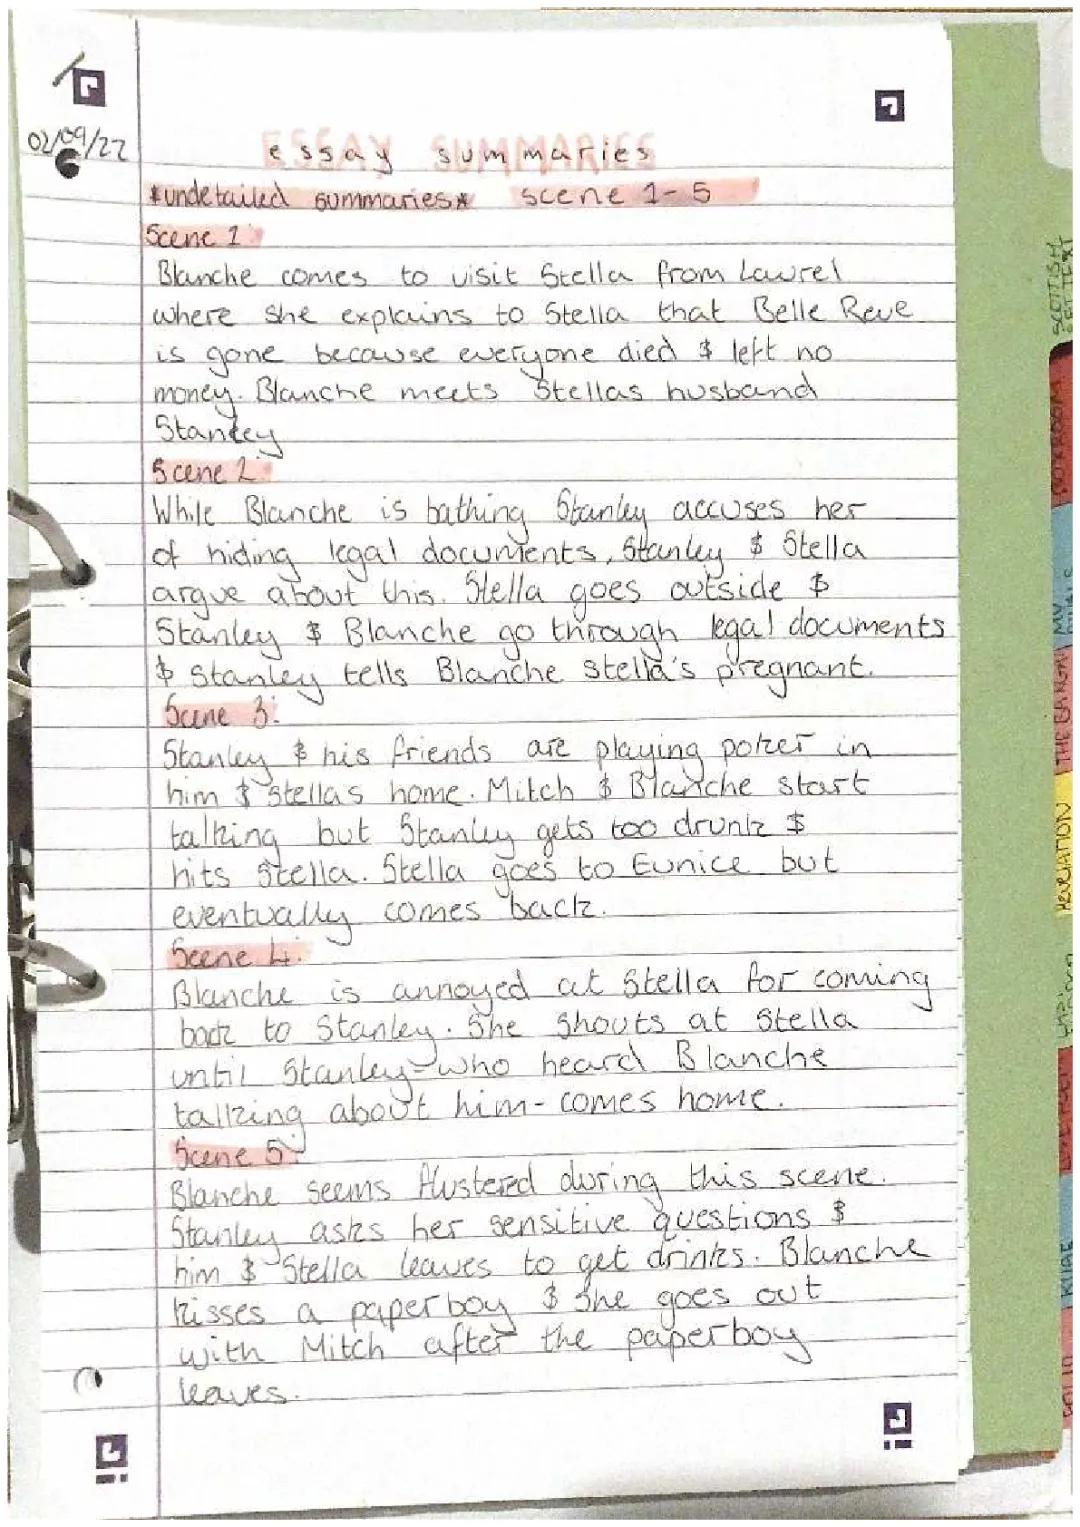 02/09/22
essay summaries
*undetailed summaries* scene 1-5
Scene 1:
Blanche comes to visit Stella from Lawrel
where she explains to Stella that Belle Reve
is gone because everyone died & left no
money. Blanche meets Stellas husband
Stanley
Scene 2:
While Blanche is bathing Stanley accuses her
of hiding legal documents, Stanley & Stella
argue about this. Stella goes outside &
Stanley & Blanche go through legal documents
& Stanley tells Blanche Stella's pregnant.
Scene 3:
Stanley & his friends are playing poker in
him & Stellas home. Mitch & Blanche start
talking but Stanley gets too drunk &
hits Stella. Stella goes to Eunice but
eventually comes back.
Scene 4:
Blanche is annoyed at Stella for coming
back to Stanley. She shouts at Stella
until Stanley-who heard Blanche
talking about him-comes home.
Scene 5:
Blanche seems flustered during this scene.
Stanley asks her sensitive questions &
him & Stella leaves to get drinks. Blanche
kisses a paperboy & she goes out
with Mitch after the paperboy
leaves.
REVELATION